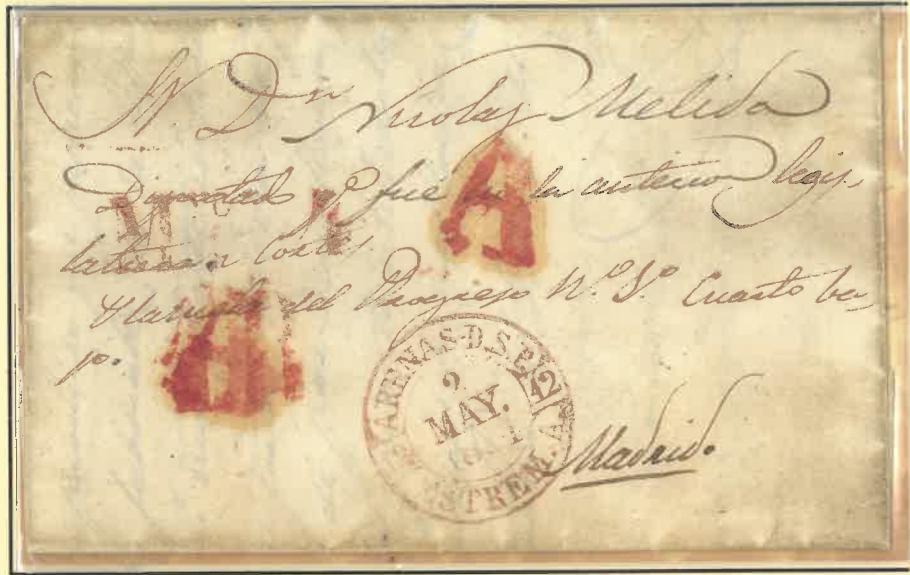 Sr. D.n Nicolas Melida
Diputado q.e fué en la anterior legis-
latura a Cortes.
Plazuela del Progreso N.º 8.º Cuarto ba-
jo.
Madrid.
ARENAS-D.S.P.
12
2
MAY.
ESTREM. A
A